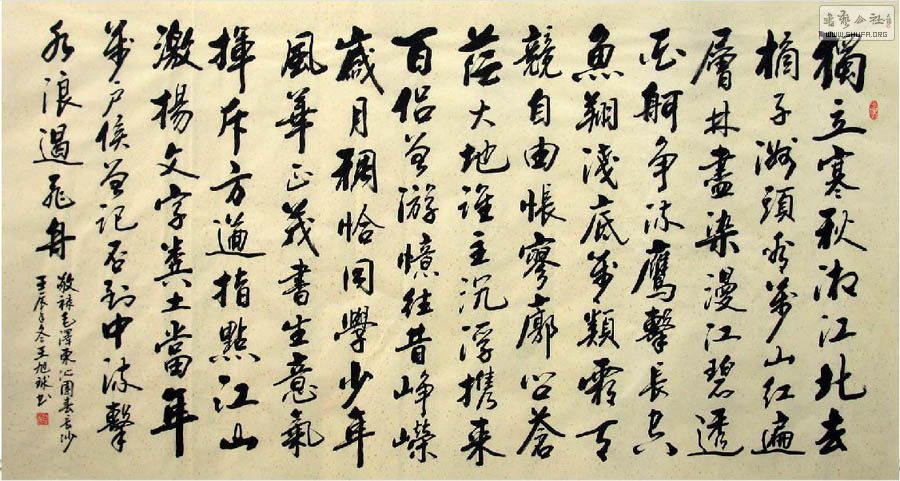 獨立寒秋湘江北去
橘子洲頭看萬山紅遍
層林盡染漫江碧透
百舸争流鷹擊長空
魚翔淺底萬類霜天
競自由悵寥廓問蒼
茫大地誰主沉浮携來
百侣曾游憶往昔崢嶸
歲月稠恰同學少年
風華正茂書生意氣
揮斥方遒指點江山
激揚文字糞土當年
萬户侯曾記否到中流擊
水浪遏飛舟
敬録毛澤東沁園春長沙
壬辰年冬王旭球書
WWW.SHUFA.ORG